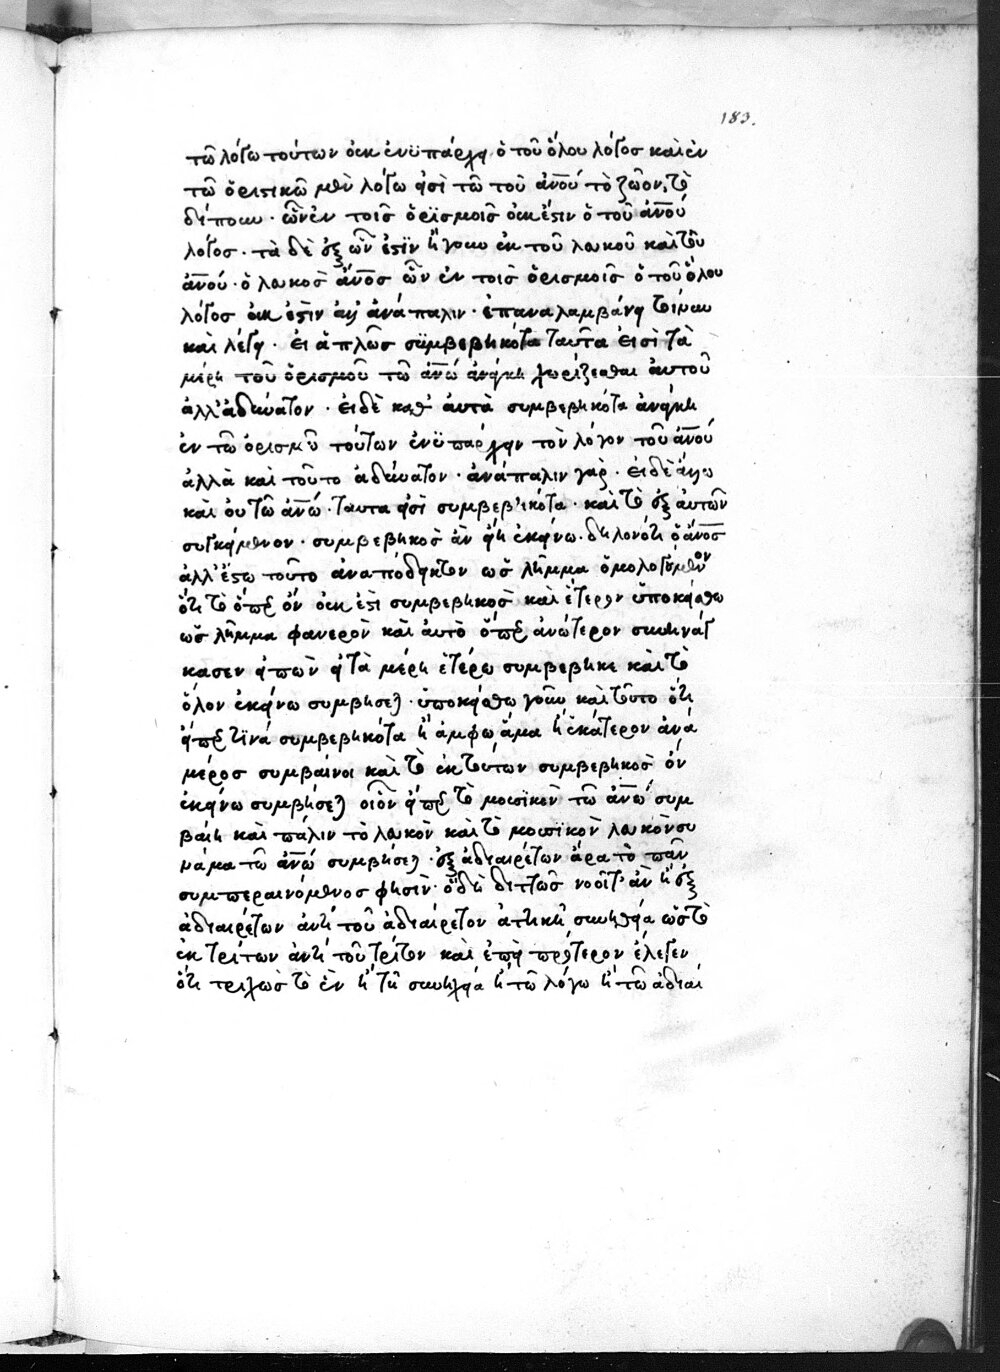 183.
τῶ λόγω τούτων οὐκ ἐνϋπάρχει ὁ τοῦ ὅλου λόγος καὶ ἐν
τῶ ὁριστικῶ μὲν λόγω εἰσὶ τῶ τοῦ ἀνοῦ τὸ ζῶον, τὸ
δίπουν · ὧν ἐν τοῖς ὁρϊσμοῖς οὐκ ἔστιν ὁ τοῦ ἀνοῦ
λόγος · τὰ δὲ ἐξ ὧν ἐστϊν ἤγουν ἐκ τοῦ λευκοῦ καὶ τοῦ
ἀνοῦ · ὁ λευκὸς ἄνος ὧν ἐν τοῖς ὁρισμοῖς ὁ τοῦ ὅλου
λόγος οὐκ ἔστιν ἀλλ' ἀνάπαλιν · ἐπαναλαμβάνει
καὶ λέγει · εἰ ἁπλῶς συμβεβηκότα ταῦτα εἰσὶ τὰ
μέρη τοῦ ὁρισμοῦ τῶ ἀνω ἀνάγκη χωρίζεσθαι αὐτοῦ
ἀλλ' ἀδύνατον · εἰ δὲ καθ' αὑτὰ συμβεβηκότα ἀνάγκη
ἐν τῶ ὁρισμῶ τούτων ἐνϋπάρχειν τὸν λόγον τοῦ ἀνοῦ
ἀλλὰ καὶ τοῦτο ἀδύνατον · ἀνάπαλιν γὰρ · εἰ δὲ ἄλλω
καὶ οὐ τῶ ἀνω · ταυτα εἰσὶ συμβεβηκότα · καὶ τὸ ἐξ αὐτῶν
συγκείμενον · συμβεβηκὸς ἂν εἴη ἐκείνω · δηλονότι ὁ ἄνος
ἀλλ' ἔστω τοῦτο ἀναπόδεικτον ὡς λῆμμα ὁμολογούμενον
ὅτι τὸ ὅπερ ὂν οὐκ ἔστι συμβεβηκὸς καὶ ἕτερον ὑποκείσθω
ὡς λῆμμα φανερὸν καὶ αὐτὸ ὅπερ ἀνώτερον συνηνάγ
κασεν εἰπὼν εἰ τὰ μέρη ἑτέρω συμβέβηκε καὶ τὸ
ὅλον ἐκείνω συμβήσεται · ὑποκείσθω γοῦν καὶ τοῦτο ὅτι
εἴπερ τϊνά συμβεβηκότα ἢ ἄμφω ἅμα ἢ ἑκάτερον ἀνὰ
μέρος συμβαίνοι καὶ τὸ ἐκ τούτων συμβεβηκὸς ὂν
ἐκείνω συμβήσεται οἷον εἴπερ τὸ μουσϊκὸν τῶ ἀνω συμ
βαίη καὶ πάλιν τὸ λευκὸν καὶ τὸ μουσϊκὸν λευκὸν συ
νάμα τῶ ἀνω συμβήσεται · ἐξ ἀδιαιρέτων ἄρα τὸ πᾶν
συμπεραινόμενος φησίν · ὃ δὴ διττῶς νοοῖτ' ἂν ἢ ἐξ
ἀδιαιρέτων ἀντὶ τοῦ ἀδιαίρετον ἀττικῆ συνηθεία ὥς τὸ
ἐκ τρίτων ἀντὶ τοῦ τρίτον καὶ ἐπεὶ πρότερον ἔλεγεν
ὅτι τριχῶς τὸ ἓν ἢ τῆ συνεχεία ἢ τῶ λόγω ἢ τῶ ἀδιαί